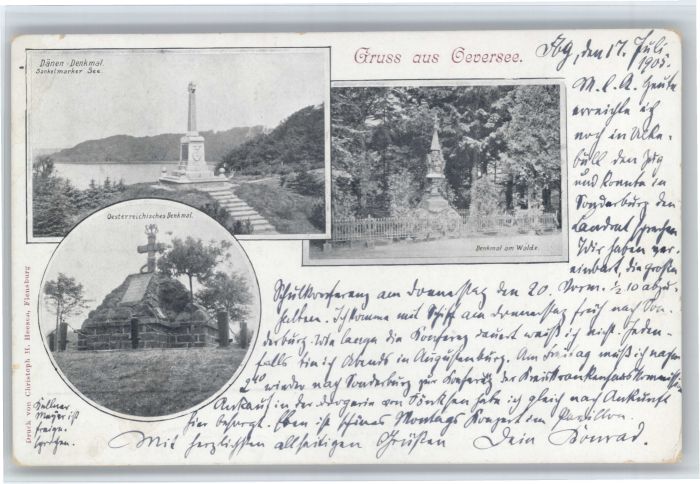 Dänen-Denkmal.
Sankelmarker See.
Gruss aus Oeversee.
Oesterreichisches Denkmal.
Denkmal am Walde.
Druck von Christoph H. Heesch, Flensburg
Fbg, den 17. Juli
1905.
M. l. A. Heute
erreichte ich
noch in
den Zug
und konnte in
Sonderburg den
Landrat sprechen
Wir haben ver-
einbart, die große
Schulkonferenz am Donnerstag den 20. Vorm. ½ 10 abzu-
halten. Ich komme mit Schiff am Donnerstag früh nach Son-
derburg. Wie lange die Konferenz dauert weiß ich nicht. Jeden-
falls bin ich Abends in Augustenburg. Am muß ich nachm
2 40 wieder nach Sonderburg zur der Kreiskrankenhauskommission
Ankauf in der Drogerie von habe ich gleich nach Ankunft
hier besorgt. Eben ist schönes Montags Konzert im Pavillon.
Mit herzlichsten allseitigen Grüßen Dein Konrad.
Kellner
Meyer ist
freige-
sprochen.